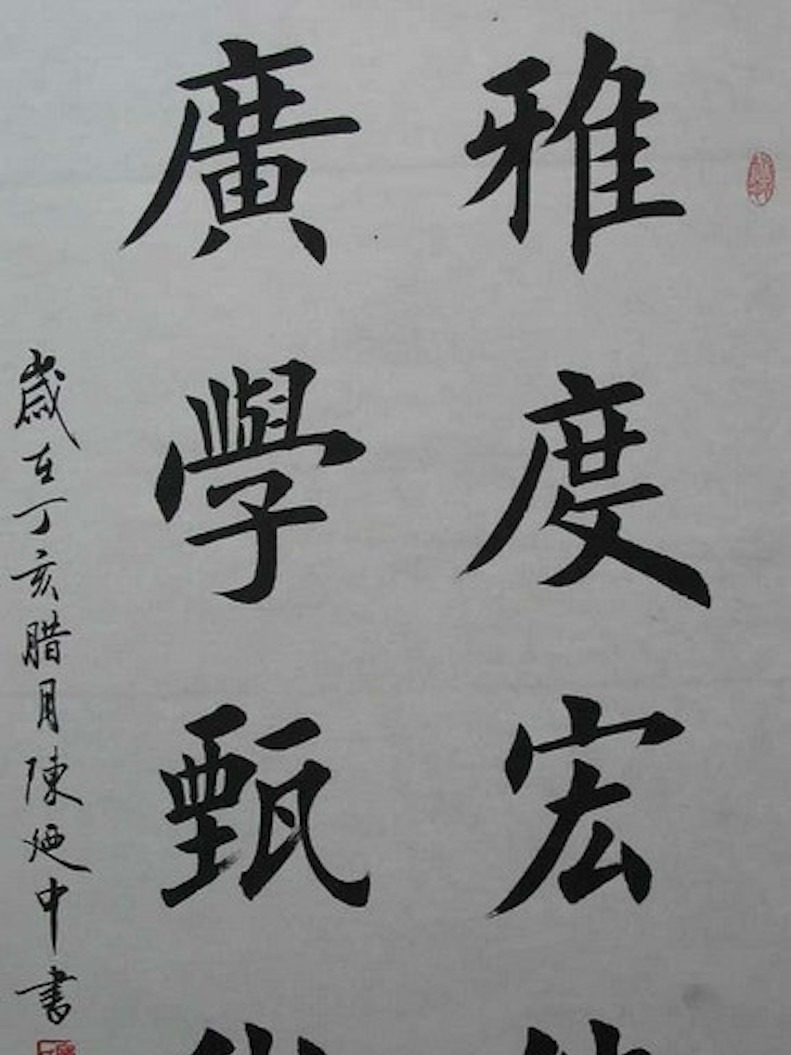 雅度宏
廣學甄
歲在丁亥腊月陳廼中書